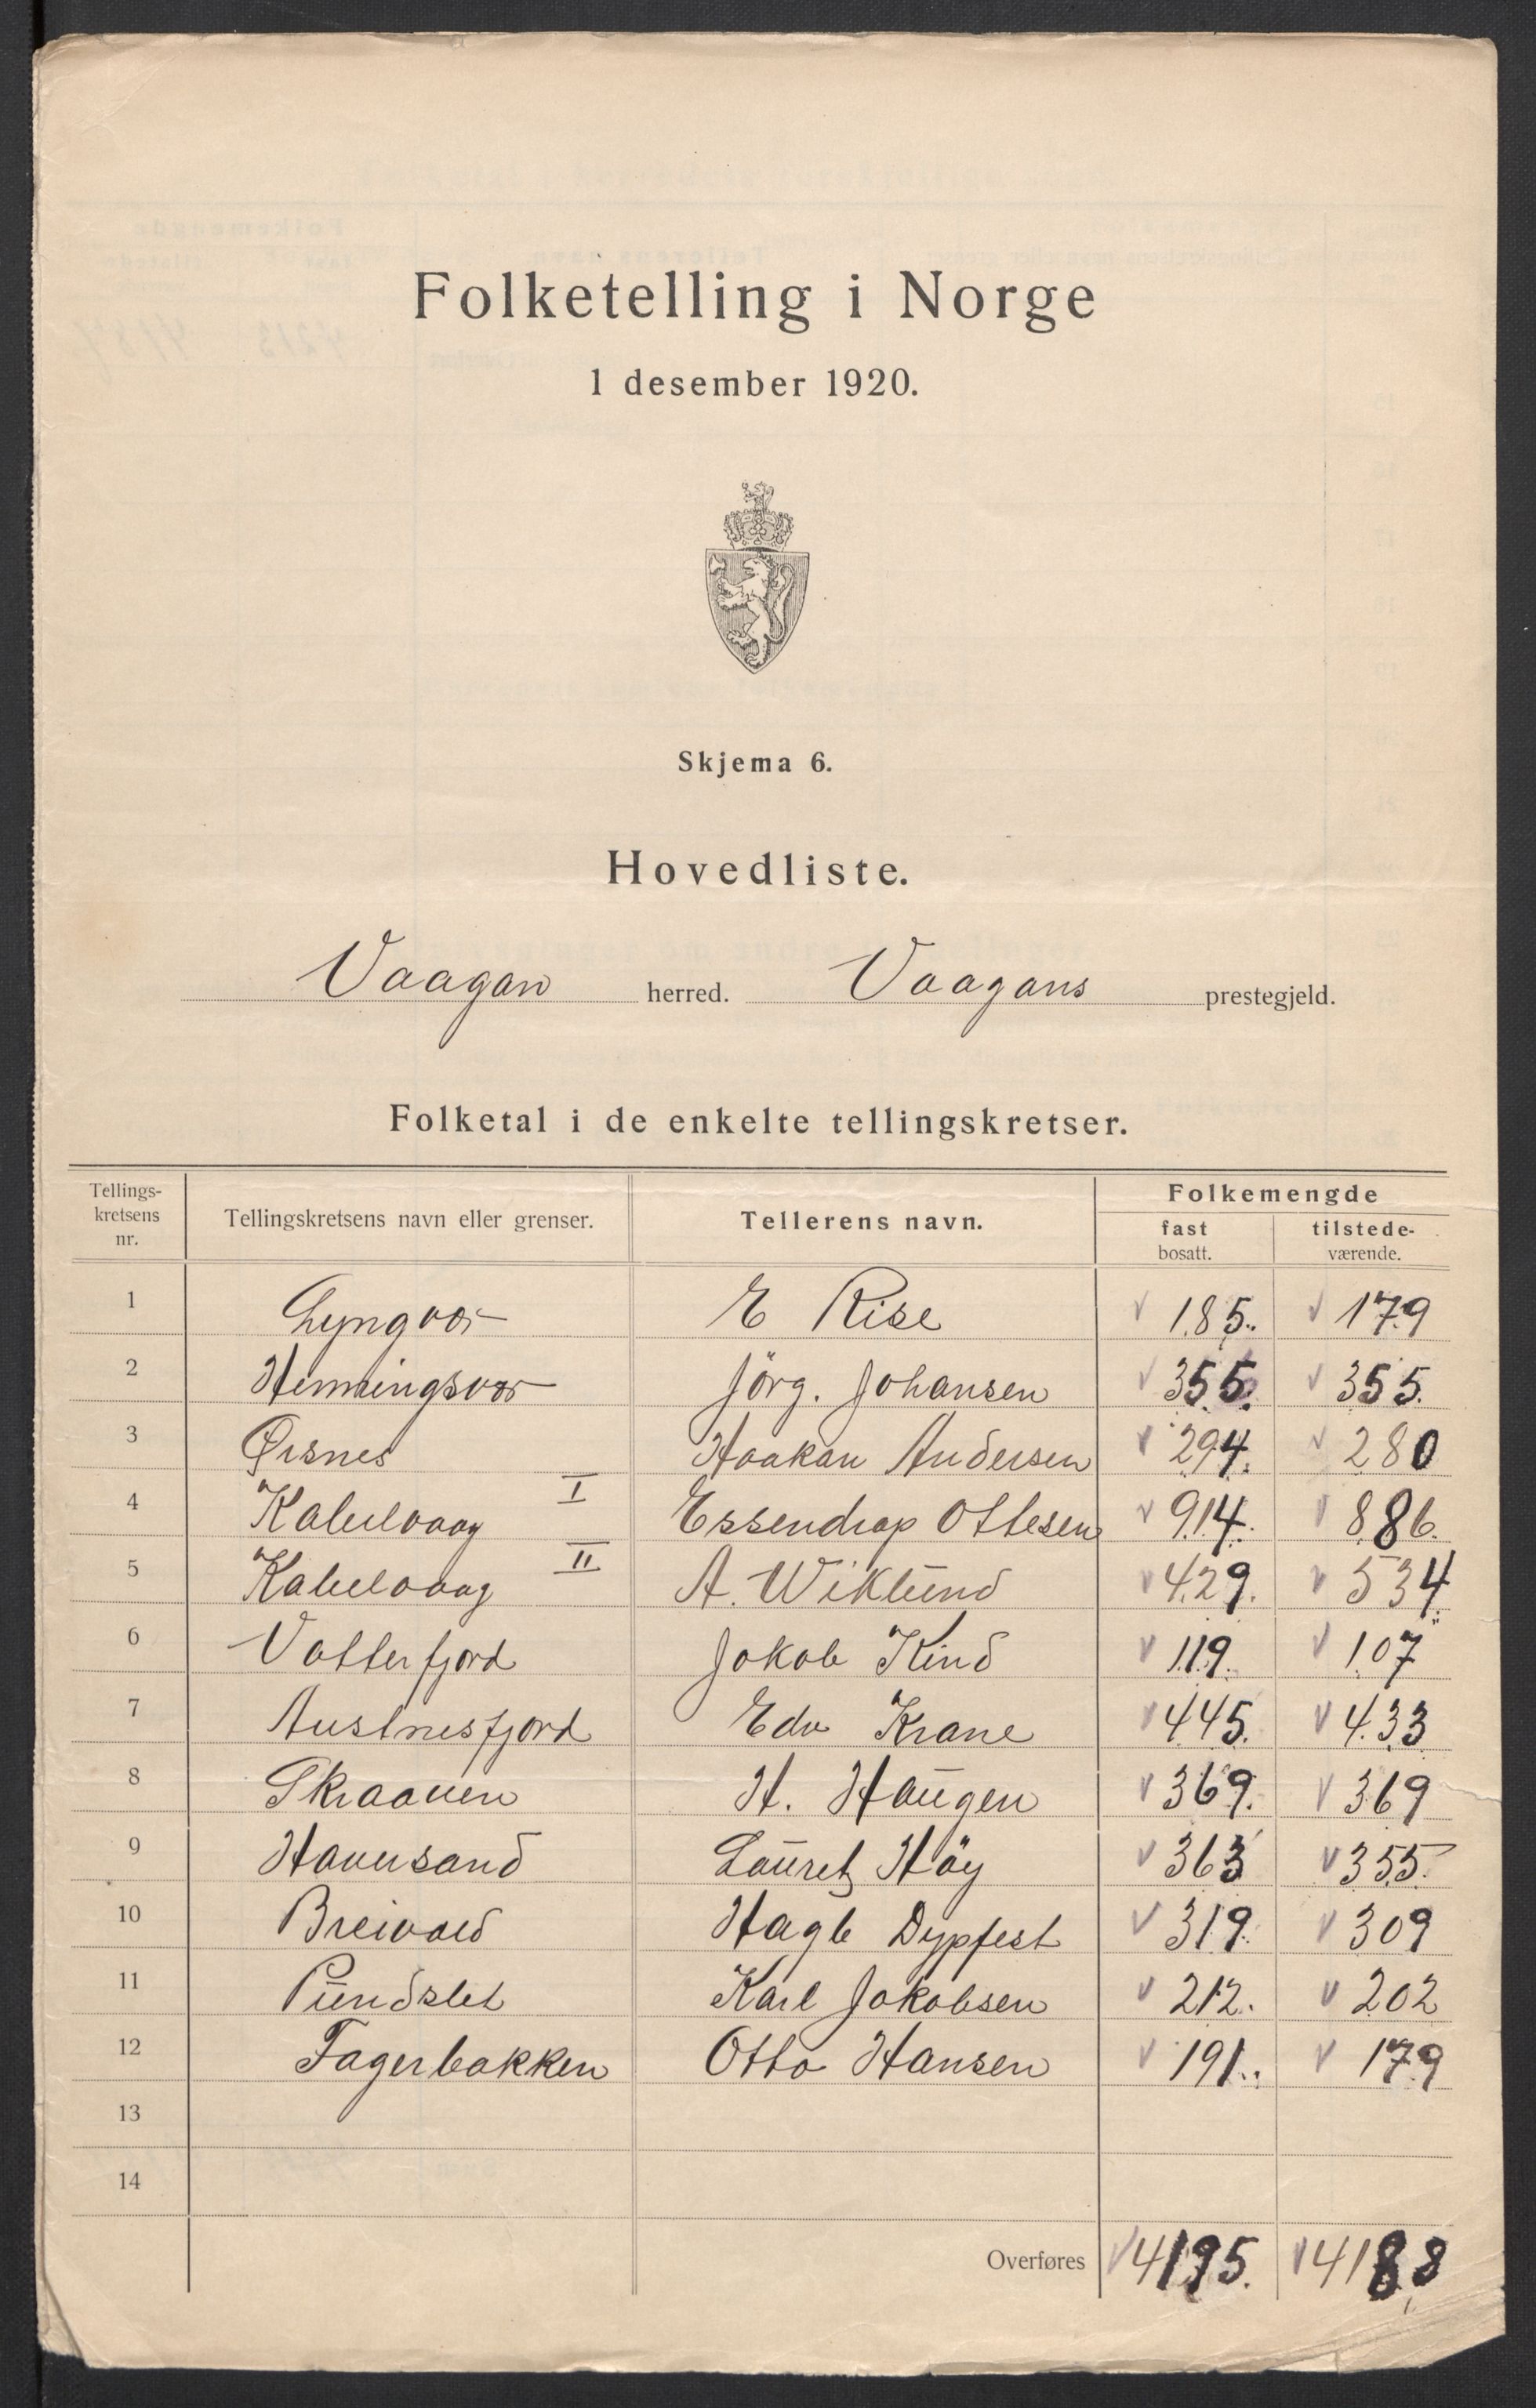 Folketelling i Norge
1 desember 1920.
Skjema 6.
Hovedliste.
Vaagan herred. Vaagans prestegjeld.
Folketal i de enkelte tellingskretser.
Tellings-kretsens nr. Tellingskretsens navn eller grenser. Tellerens navn. Folkemengde
fast bosatt. tilstede-værende.
1 Lyngvær E Rise 185. 179
2 Henningsvær Jörg. Johansen 355. 355.
3 Ørsnes Haakan Andersen 294. 280
4 Kabelvaag I Essendrop Ottesen 914. 886.
5 Kabelvaag II A. Wiklund 429. 534
6 Vatterfjord Jakob Kind 119. 107
7 Austnesfjord Edv Krane 445. 433
8 Skraaven H. Haugen 369. 369
9 Haversand Lauretz Höy 363 355.
10 Breivold Hagb Dypfest 319. 309
11 Pundslet Karl Jakobsen 212. 202
12 Fagerbakken Otto Hansen 191. 179
13
14
Overføres 4195. 4188